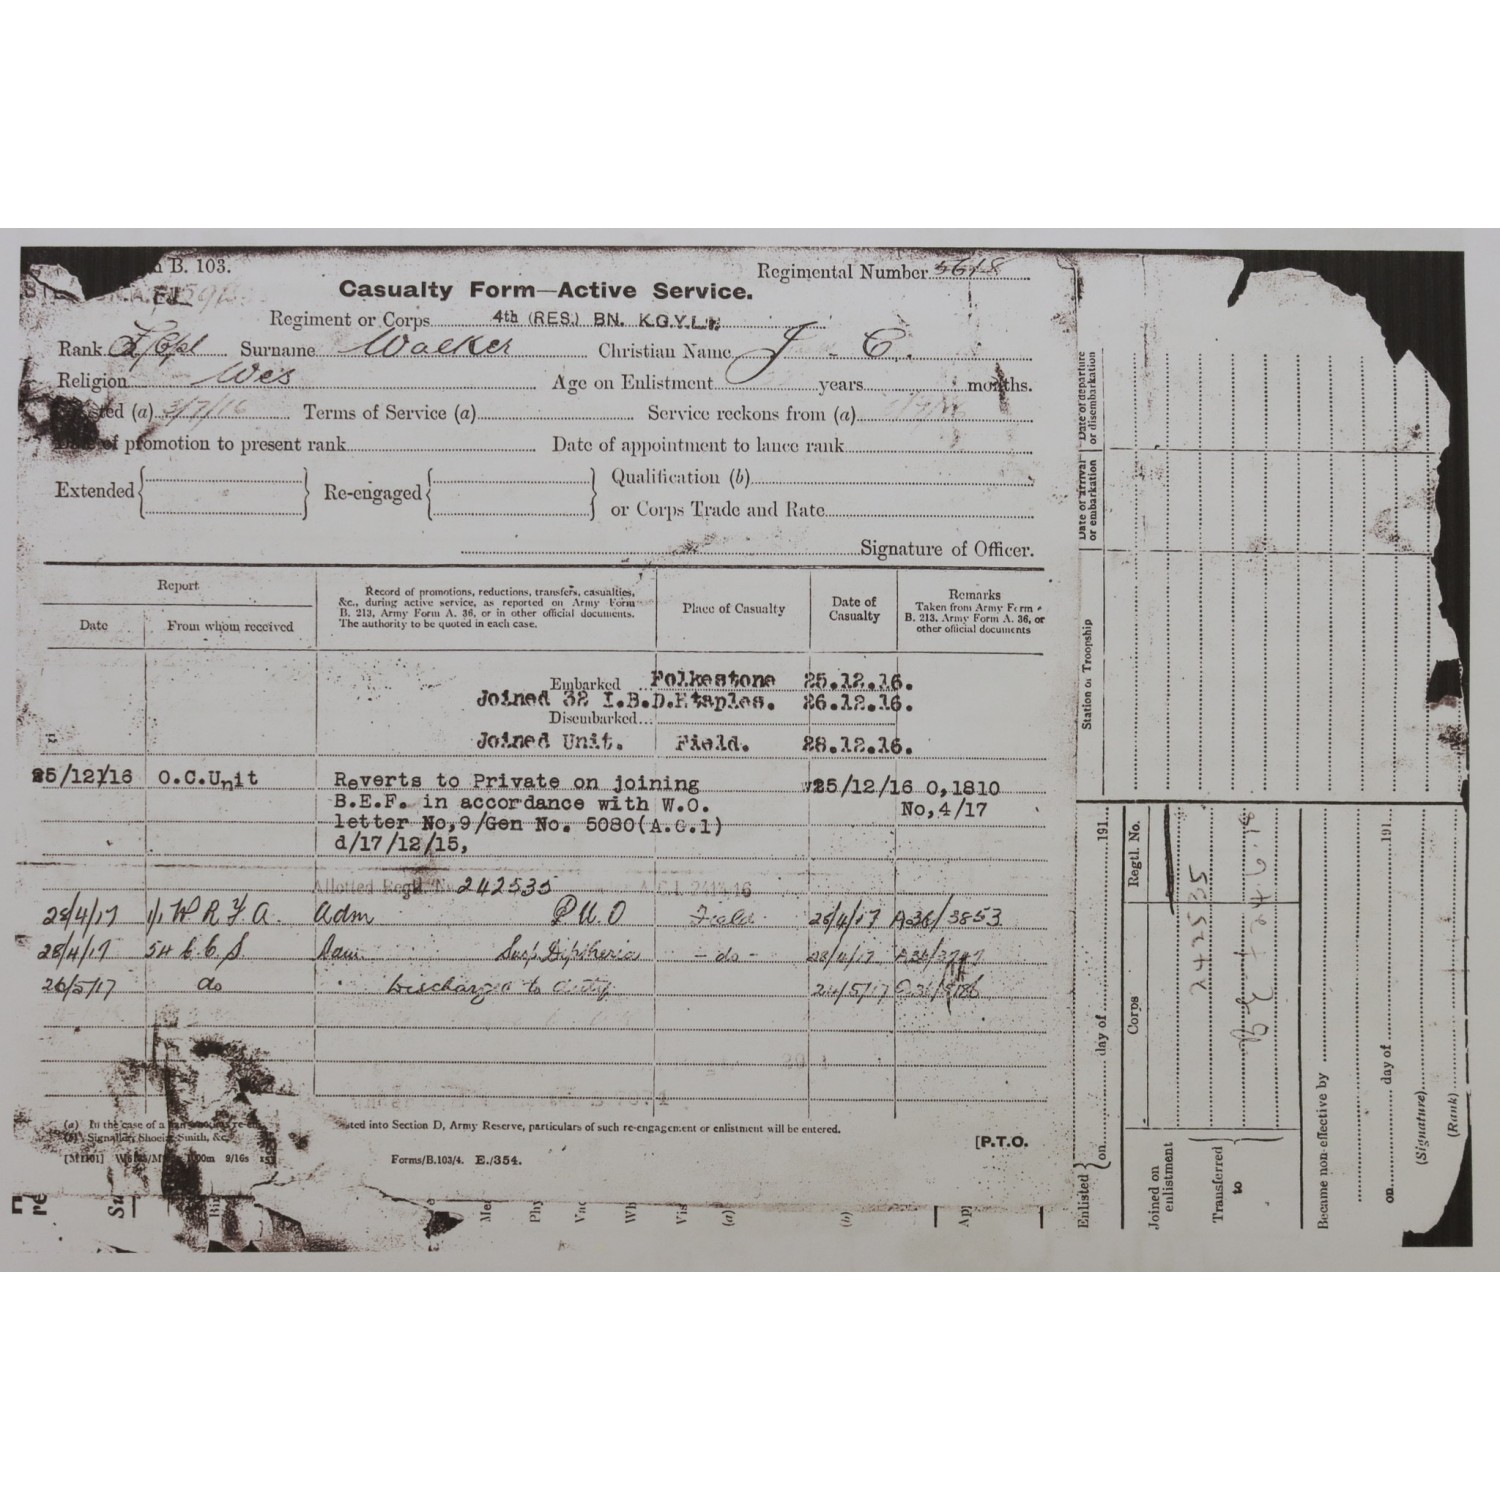 B. 103.
Regimental Number 5618
Casualty Form—Active Service.
Regiment or Corps 4th (RES.) BN. K.O.Y.L.I.
Rank L/Cpl Surname Walker Christian Name J. C.
Religion Wes Age on Enlistment years months.
(a) 3/7/16 Terms of Service (a) Service reckons from (a)
of promotion to present rank Date of appointment to lance rank
Extended Re-engaged Qualification (b)
or Corps Trade and Rate
Signature of Officer.
Report
Date
From whom received
Record of promotions, reductions, transfers, casualties,
&c., during active service, as reported on Army Form
B. 213, Army Form A. 36, or in other official documents.
The authority to be quoted in each case.
Place of Casualty
Date of
Casualty
Remarks
Taken from Army Form
B. 213, Army Form A. 36, or
other official documents
Embarked Folkestone 25.12.16.
Joined 32 I.B.D.Etaples. 26.12.16.
Disembarked...
Joined Unit. Field. 28.12.16.
25/12/16 O.C.Unit Reverts to Private on joining 25/12/16 O,1810
B.E.F. in accordance with W.O. No,4/17
letter No,9/Gen No. 5080(A.G.1)
d/17/12/15,
Allotted Regtl. No 242535 A.C.I. 2414/16
28/4/17 1/1 W R F A. Adm P.U.O Field 26/4/17 A36/3853
28/4/17 54 C C S Susp. Diphtheria - do - 28/4/17
26/5/17 do Discharged to duty 24/5/17
(a) In the case of a
ted into Section D, Army Reserve, particulars of such re-engagement or enlistment will be entered.
Smith, &c.
[P.T.O.
9/16s
Forms/B.103/4. E./354.
Date of departure
or disembarkation
Date of arrival
or embarkation
Station or Troopship
Enlisted on day of 191
Joined on
enlistment
Transferred
to
Corps
Regtl. No.
242535
Became non-effective by
on day of 191
(Signature)
(Rank)